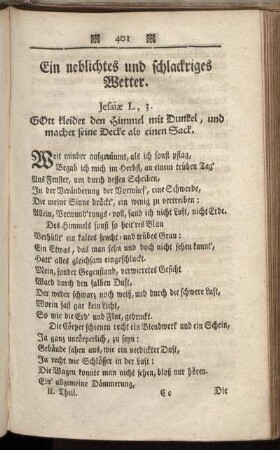 401
Ein neblichtes und schlackriges
Wetter.
Jesaiæ L, 3.
GOtt kleidet den Himmel mit Dunkel, und
machet seine Decke als einen Sack.
Weit minder aufgeräumt, als ich sonst pflag,
Begab ich mich im Herbst, an einem trüben Tag'
Ans Fenster, um durch dessen Scheiben,
In der Veränderung der Vorwürf', eine Schwerde,
Die meine Sinne drückt', ein wenig zu vertreiben:
Allein, Verwund'rungs-voll, fand ich nicht Luft, nicht Erde.
Des Himmels sonst so heit'res Blau
Verhüllt' ein kaltes feucht- und trübes Grau:
Ein Etwas, das man sehn und doch nicht sehen kunnt',
Hatt' alles gleichsam eingeschluckt.
Mein, sonder Gegenstand, verwirretes Gesicht
Ward durch den falben Duft,
Der weder schwarz noch weiß, und durch die schwere Luft,
Worin fast gar kein Licht,
So wie die Erd' und Flut, gedruckt.
Die Cörper schienen recht ein Blendwerk und ein Schein,
Ja ganz uncörperlich, zu seyn:
Gebäude sahen aus, wie ein verdickter Duft,
Ja recht wie Schlösser in der Luft:
Die Wagen konnte man nicht sehen, bloß nur hören.
Ein' allgemeine Dämmerung,
II. Theil. C c Die